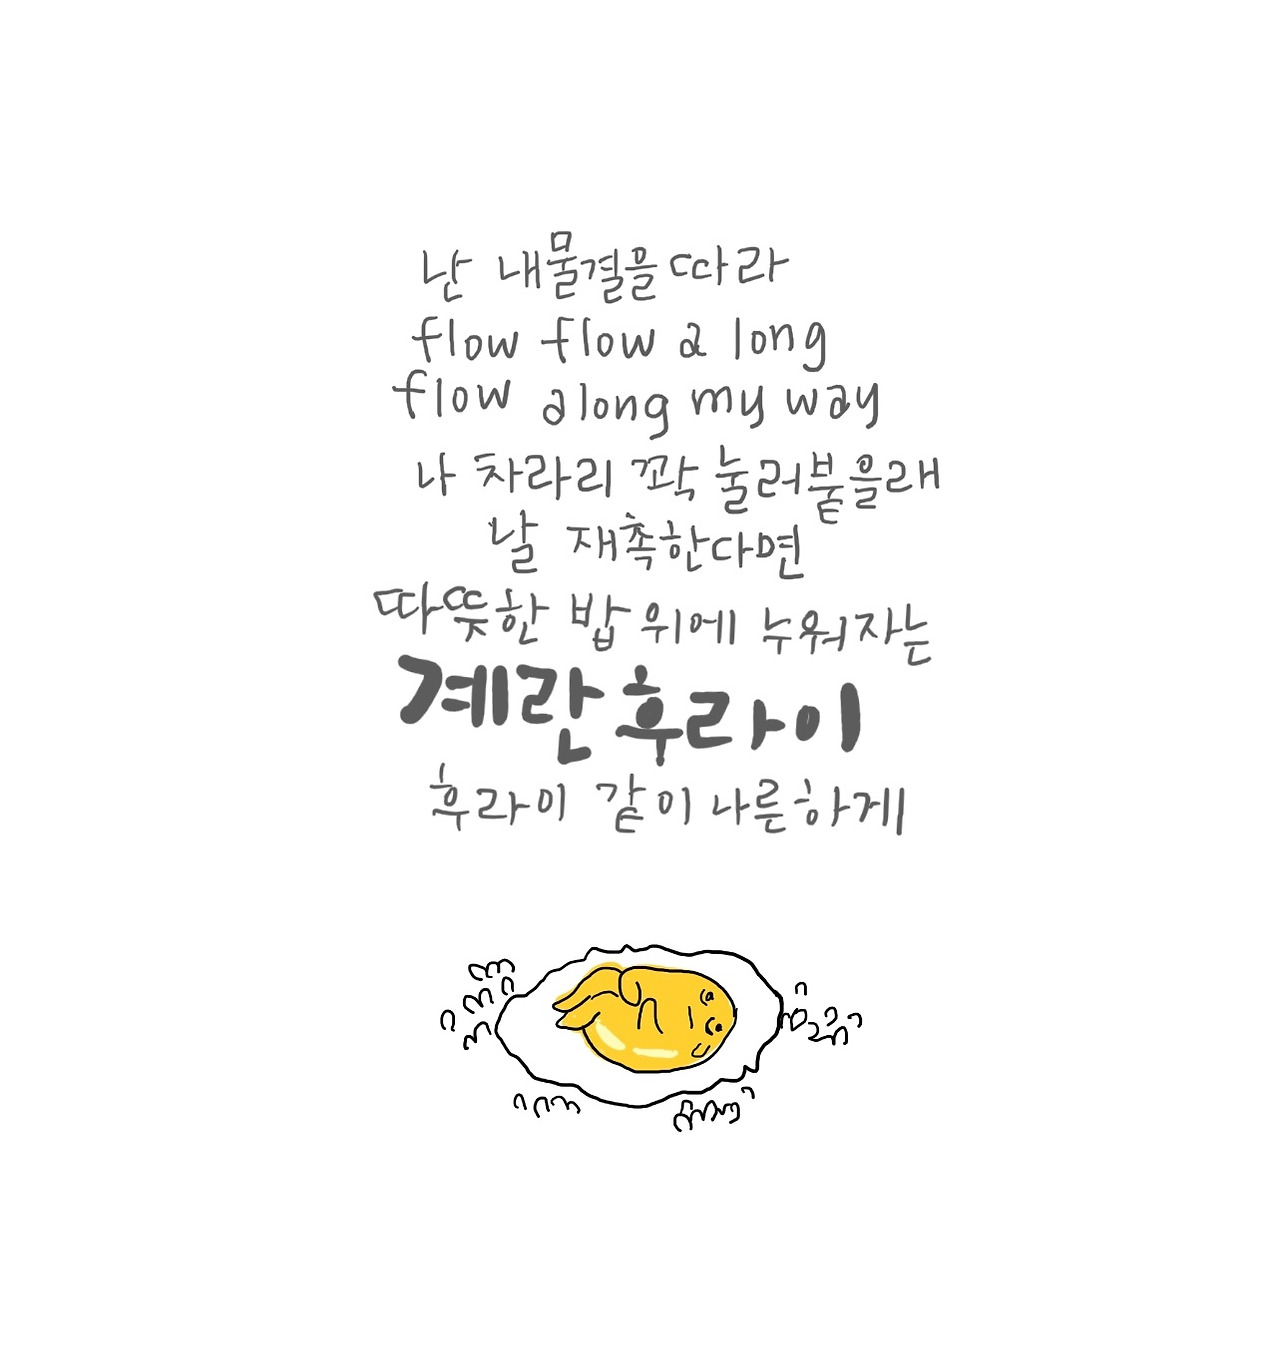 난 내물결을 따라
flow flow a long
flow along my way
나 차라리 꽈악 눌러붙을래
날 재촉한다면
따뜻한 밥 위에 누워자는
계란후라이
후라이 같이 나른하게